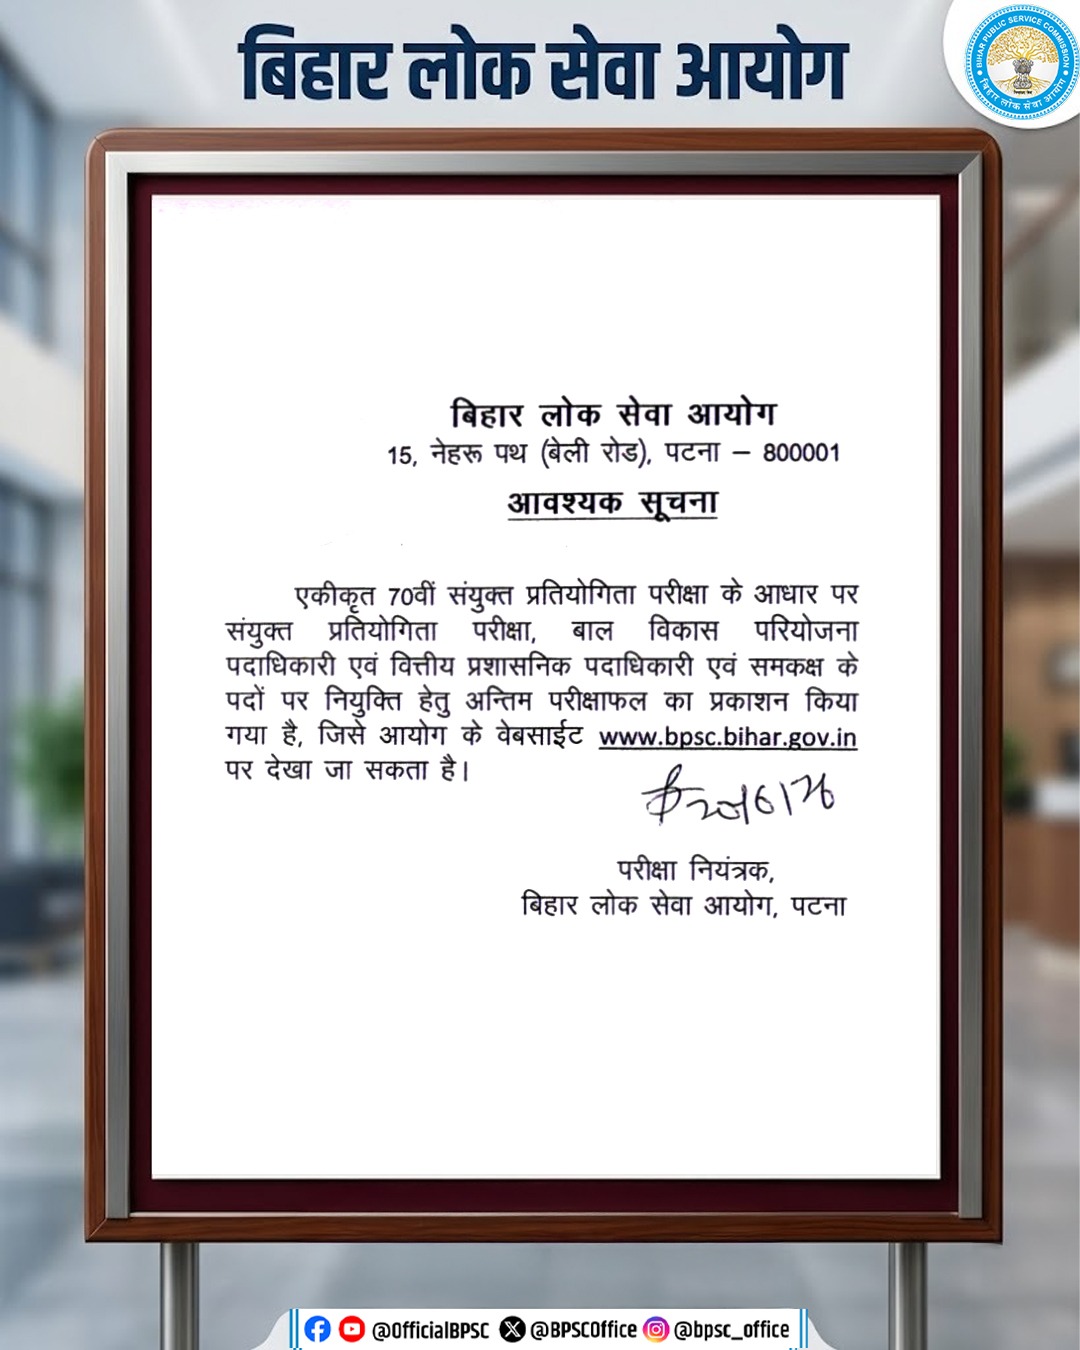 बिहार लोक सेवा आयोग
BIHAR PUBLIC SERVICE COMMISSION
बिहार लोक सेवा आयोग
बिहार लोक सेवा आयोग
15, नेहरू पथ (बेली रोड), पटना – 800001
आवश्यक सूचना
एकीकृत 70वीं संयुक्त प्रतियोगिता परीक्षा के आधार पर
संयुक्त प्रतियोगिता परीक्षा, बाल विकास परियोजना
पदाधिकारी एवं वित्तीय प्रशासनिक पदाधिकारी एवं समकक्ष के
पदों पर नियुक्ति हेतु अन्तिम परीक्षाफल का प्रकाशन किया
गया है, जिसे आयोग के वेबसाईट www.bpsc.bihar.gov.in
पर देखा जा सकता है।
परीक्षा नियंत्रक,
बिहार लोक सेवा आयोग, पटना
@OfficialBPSC @BPSCOffice @bpsc_office